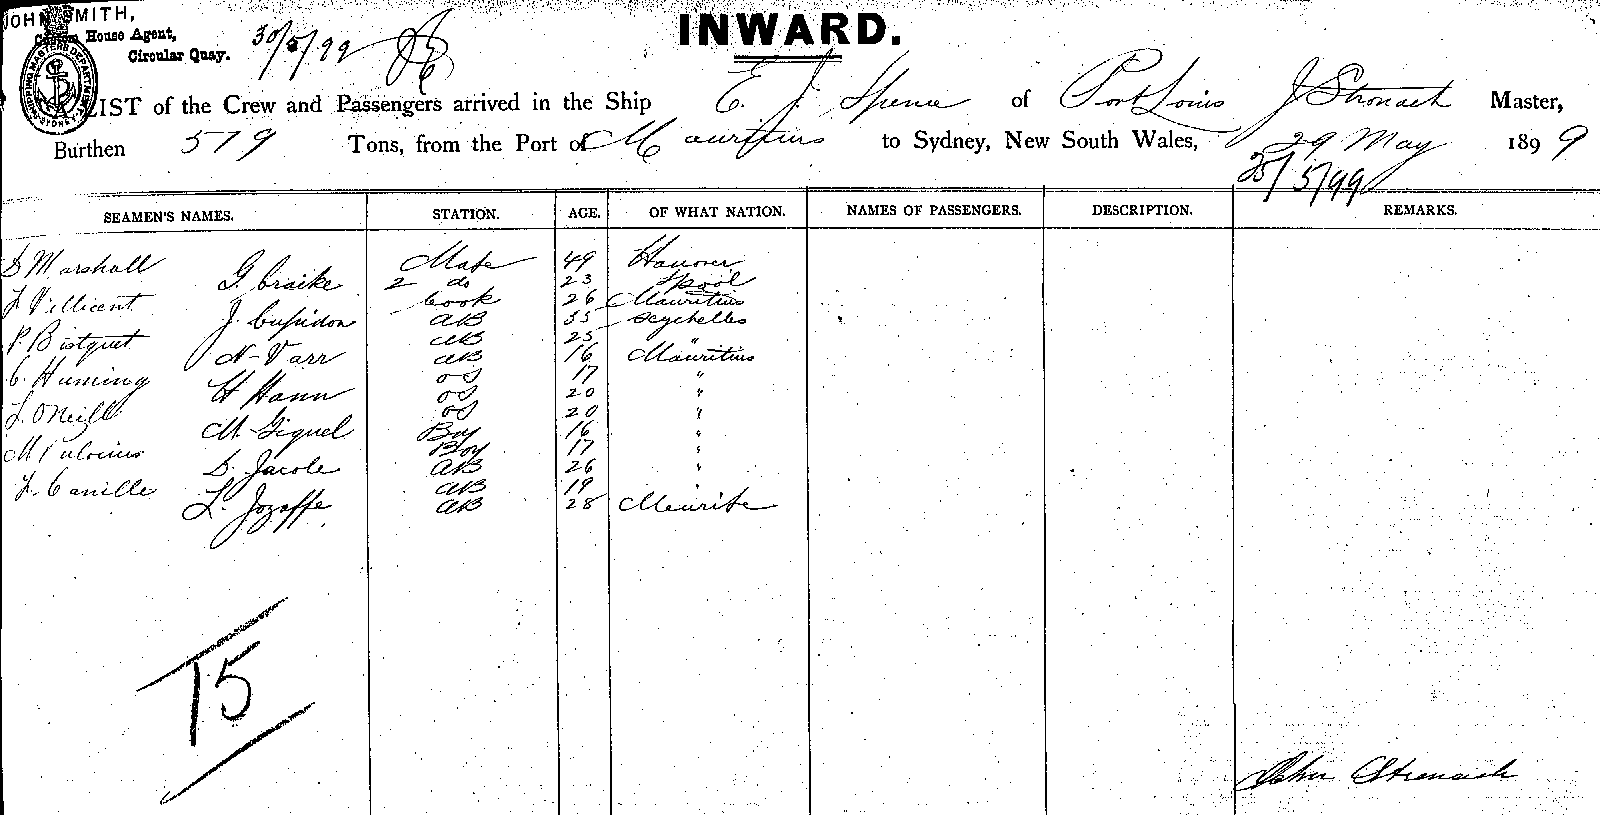 JOHN SMITH,
Custom House Agent,
Circular Quay.
30/5/99
INWARD.
SHIPPING MASTERS DEPARTMENT SYDNEY
A LIST of the Crew and Passengers arrived in the Ship E. J. Spence of Port Louis J Stronach Master,
Burthen 519 Tons, from the Port of Mauritius to Sydney, New South Wales, 29 May 1899
/5/99
SEAMEN'S NAMES. STATION. AGE. OF WHAT NATION. NAMES OF PASSENGERS. DESCRIPTION. REMARKS.
D Marshall Mate 49 Hanover
G. Craike 2 do 23 Lpool
Villicent Cook 26 Mauritius
J. Cupidon AB 35 Seychelles
P. AB 25 "
N. Varr AB 16 Mauritius
C. Huming OS 17 "
H Hann OS 20 "
L. ONeill OS 20 "
M. Giquel Boy 16 "
M Boy 17 "
D. Jacole AB 26 "
L. Camille AB 19 "
L. Jozaffe AB 28
15
John Stronach